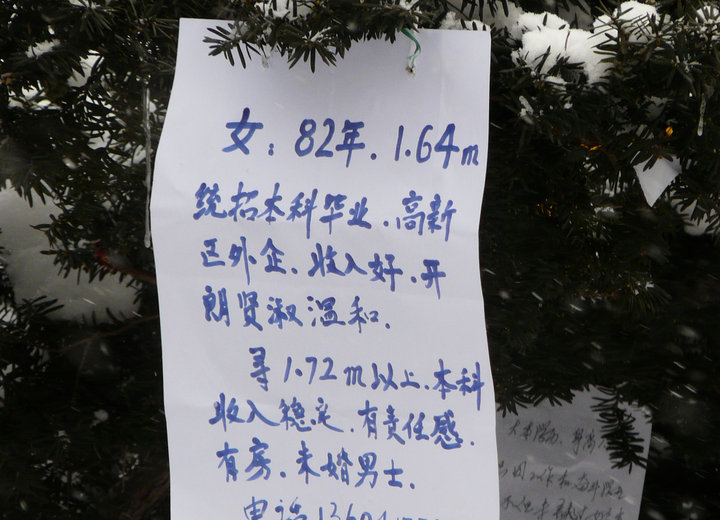 女：82年．1.64m
统招本科毕业．高新
区外企．收入好．开
朗贤淑温和．
寻1.72m以上．本科
收入稳定．有责任感．
有房．未婚男士．
电话